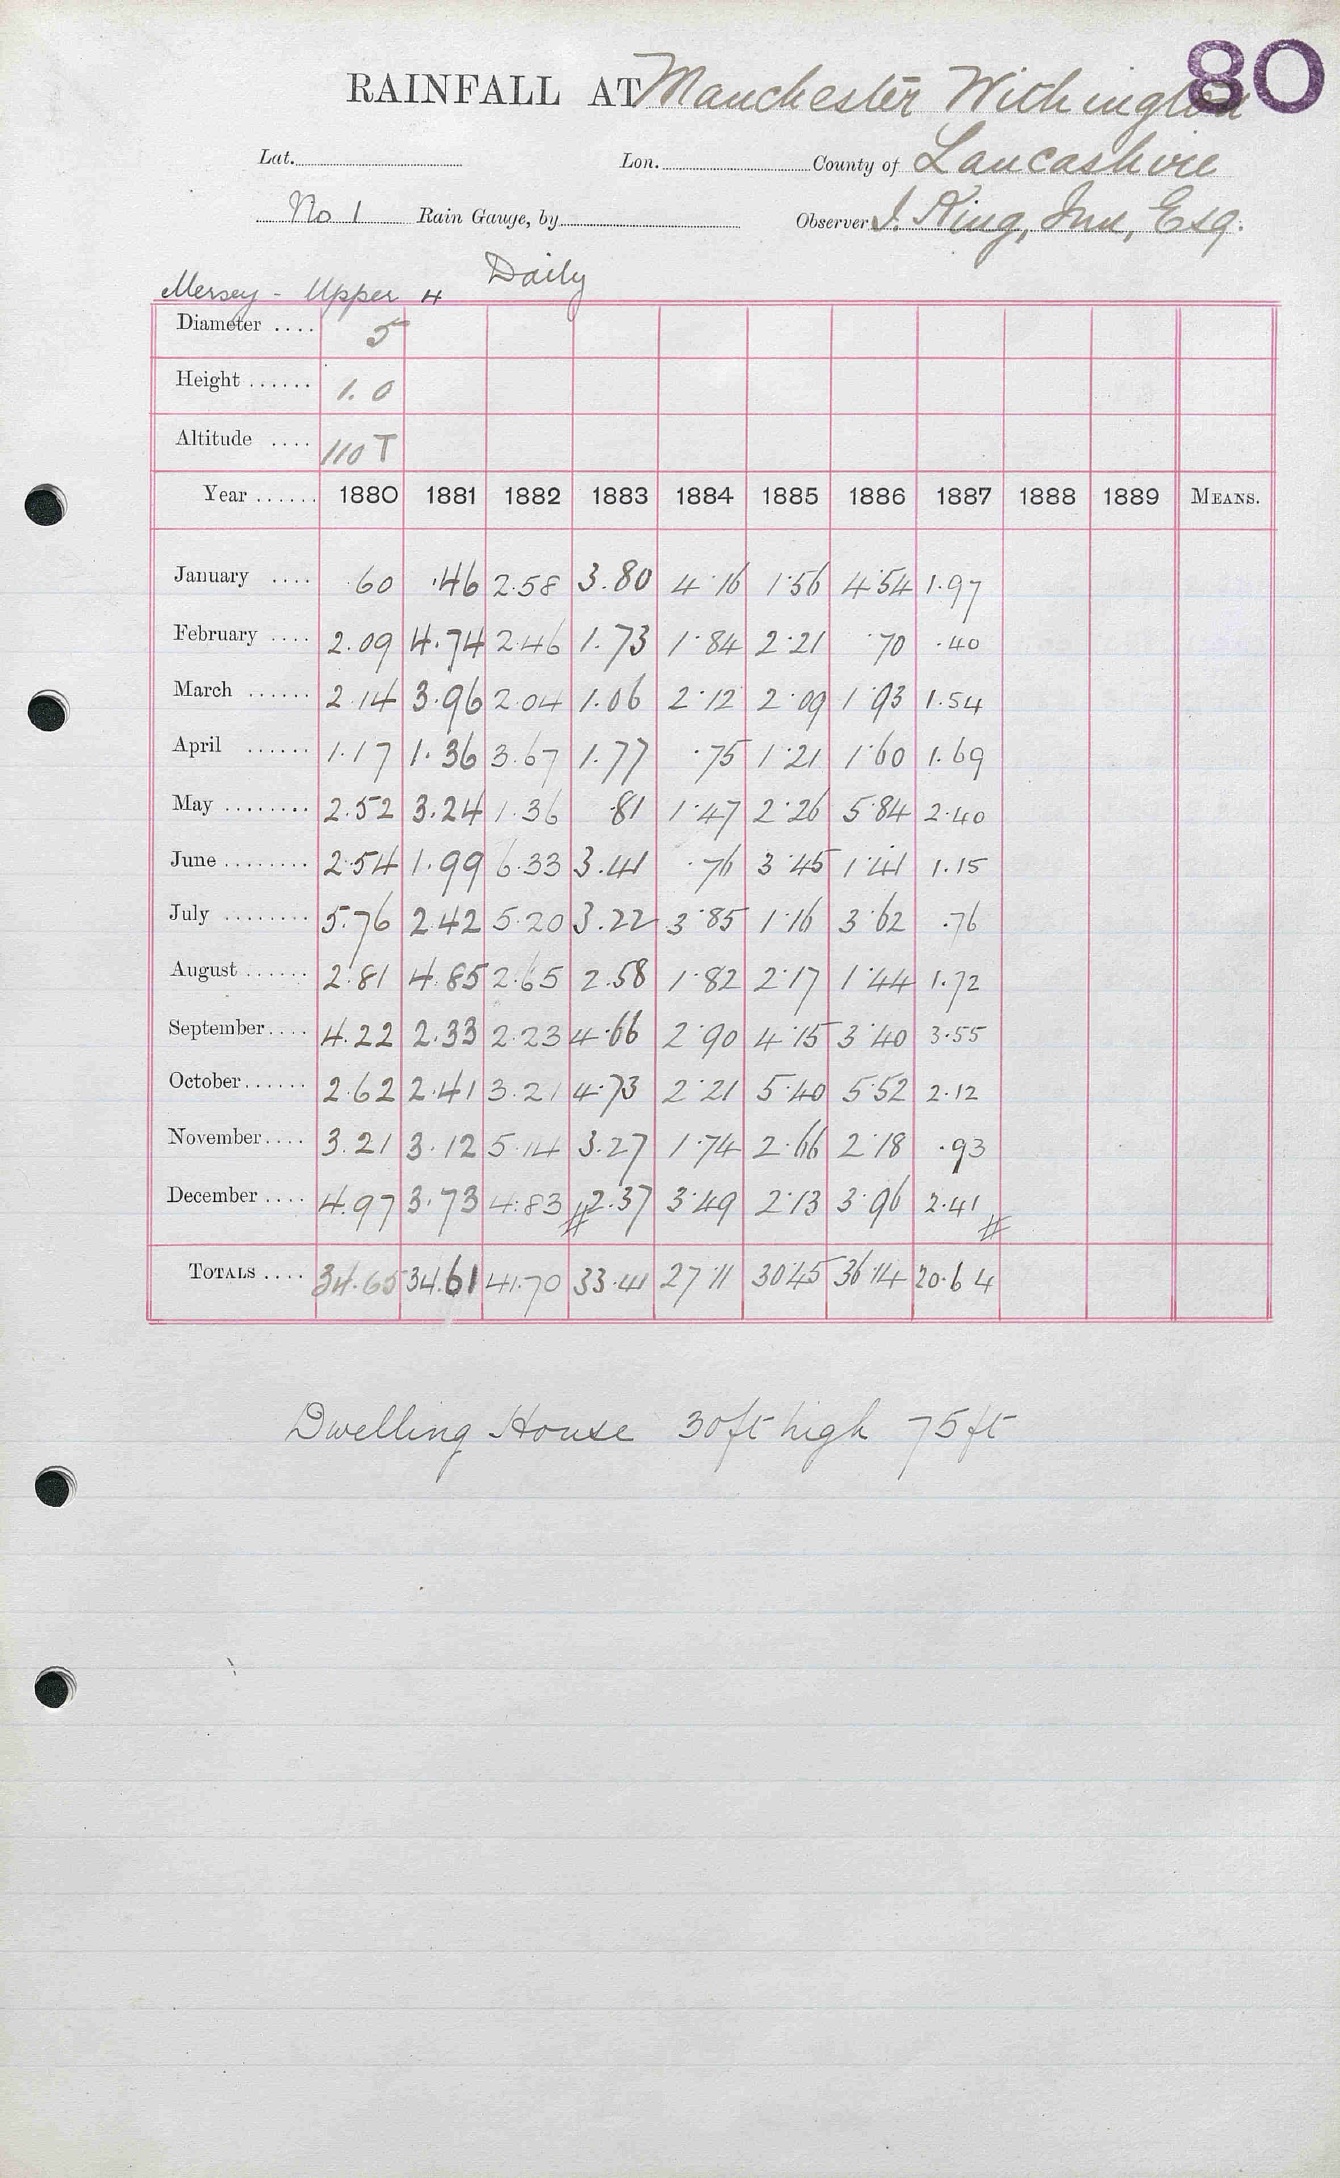 80
RAINFALL AT Manchester Withington
Lat. Lon. County of Lancashire
No 1 Rain Gauge, by Observer J. King, Jnr, Esq.
Mersey - Upper 4 Daily
Diameter .... 5
Height ...... 1.0
Altitude .... 110 T
Year ...... 1880 1881 1882 1883 1884 1885 1886 1887 1888 1889 MEANS.
January .... .60 .46 2.58 3.80 4.16 1.56 4.54 1.97
February .... 2.09 4.74 2.46 1.73 1.84 2.21 .70 .40
March ...... 2.14 3.96 2.04 1.06 2.12 2.09 1.93 1.54
April ...... 1.17 1.36 3.67 1.77 .75 1.21 1.60 1.69
May ........ 2.52 3.24 1.36 .81 1.47 2.26 5.84 2.40
June ........ 2.54 1.99 6.33 3.41 .76 3.45 1.41 1.15
July ........ 5.76 2.42 5.20 3.22 3.85 1.16 3.62 .76
August ...... 2.81 4.85 2.65 2.58 1.82 2.17 1.44 1.72
September .... 4.22 2.33 2.23 4.66 2.90 4.15 3.40 3.55
October ...... 2.62 2.41 3.21 4.73 2.21 5.40 5.52 2.12
November .... 3.21 3.12 5.14 3.27 1.74 2.66 2.18 .93
December .... 4.97 3.73 4.83 # 2.37 3.49 2.13 3.96 2.41 #
TOTALS .... 34.65 34.61 41.70 33.41 27.11 30.45 36.14 20.64
Dwelling House 30ft high 75ft